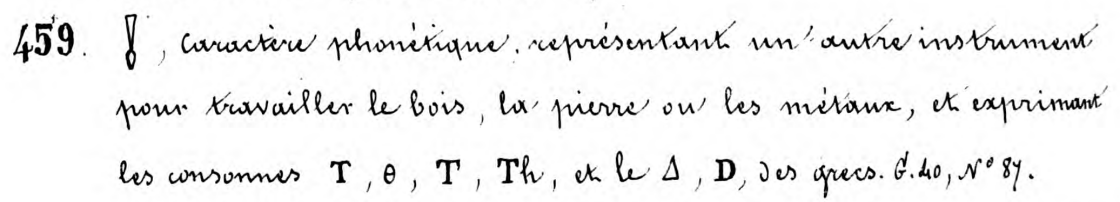 459. 𓍋, caractère phonétique, représentant un autre instrument
pour travailler le bois, la pierre ou les métaux, et exprimant
les consonnes T, θ, T, Th, et le Δ, D, des grecs. G. 40, N° 87.